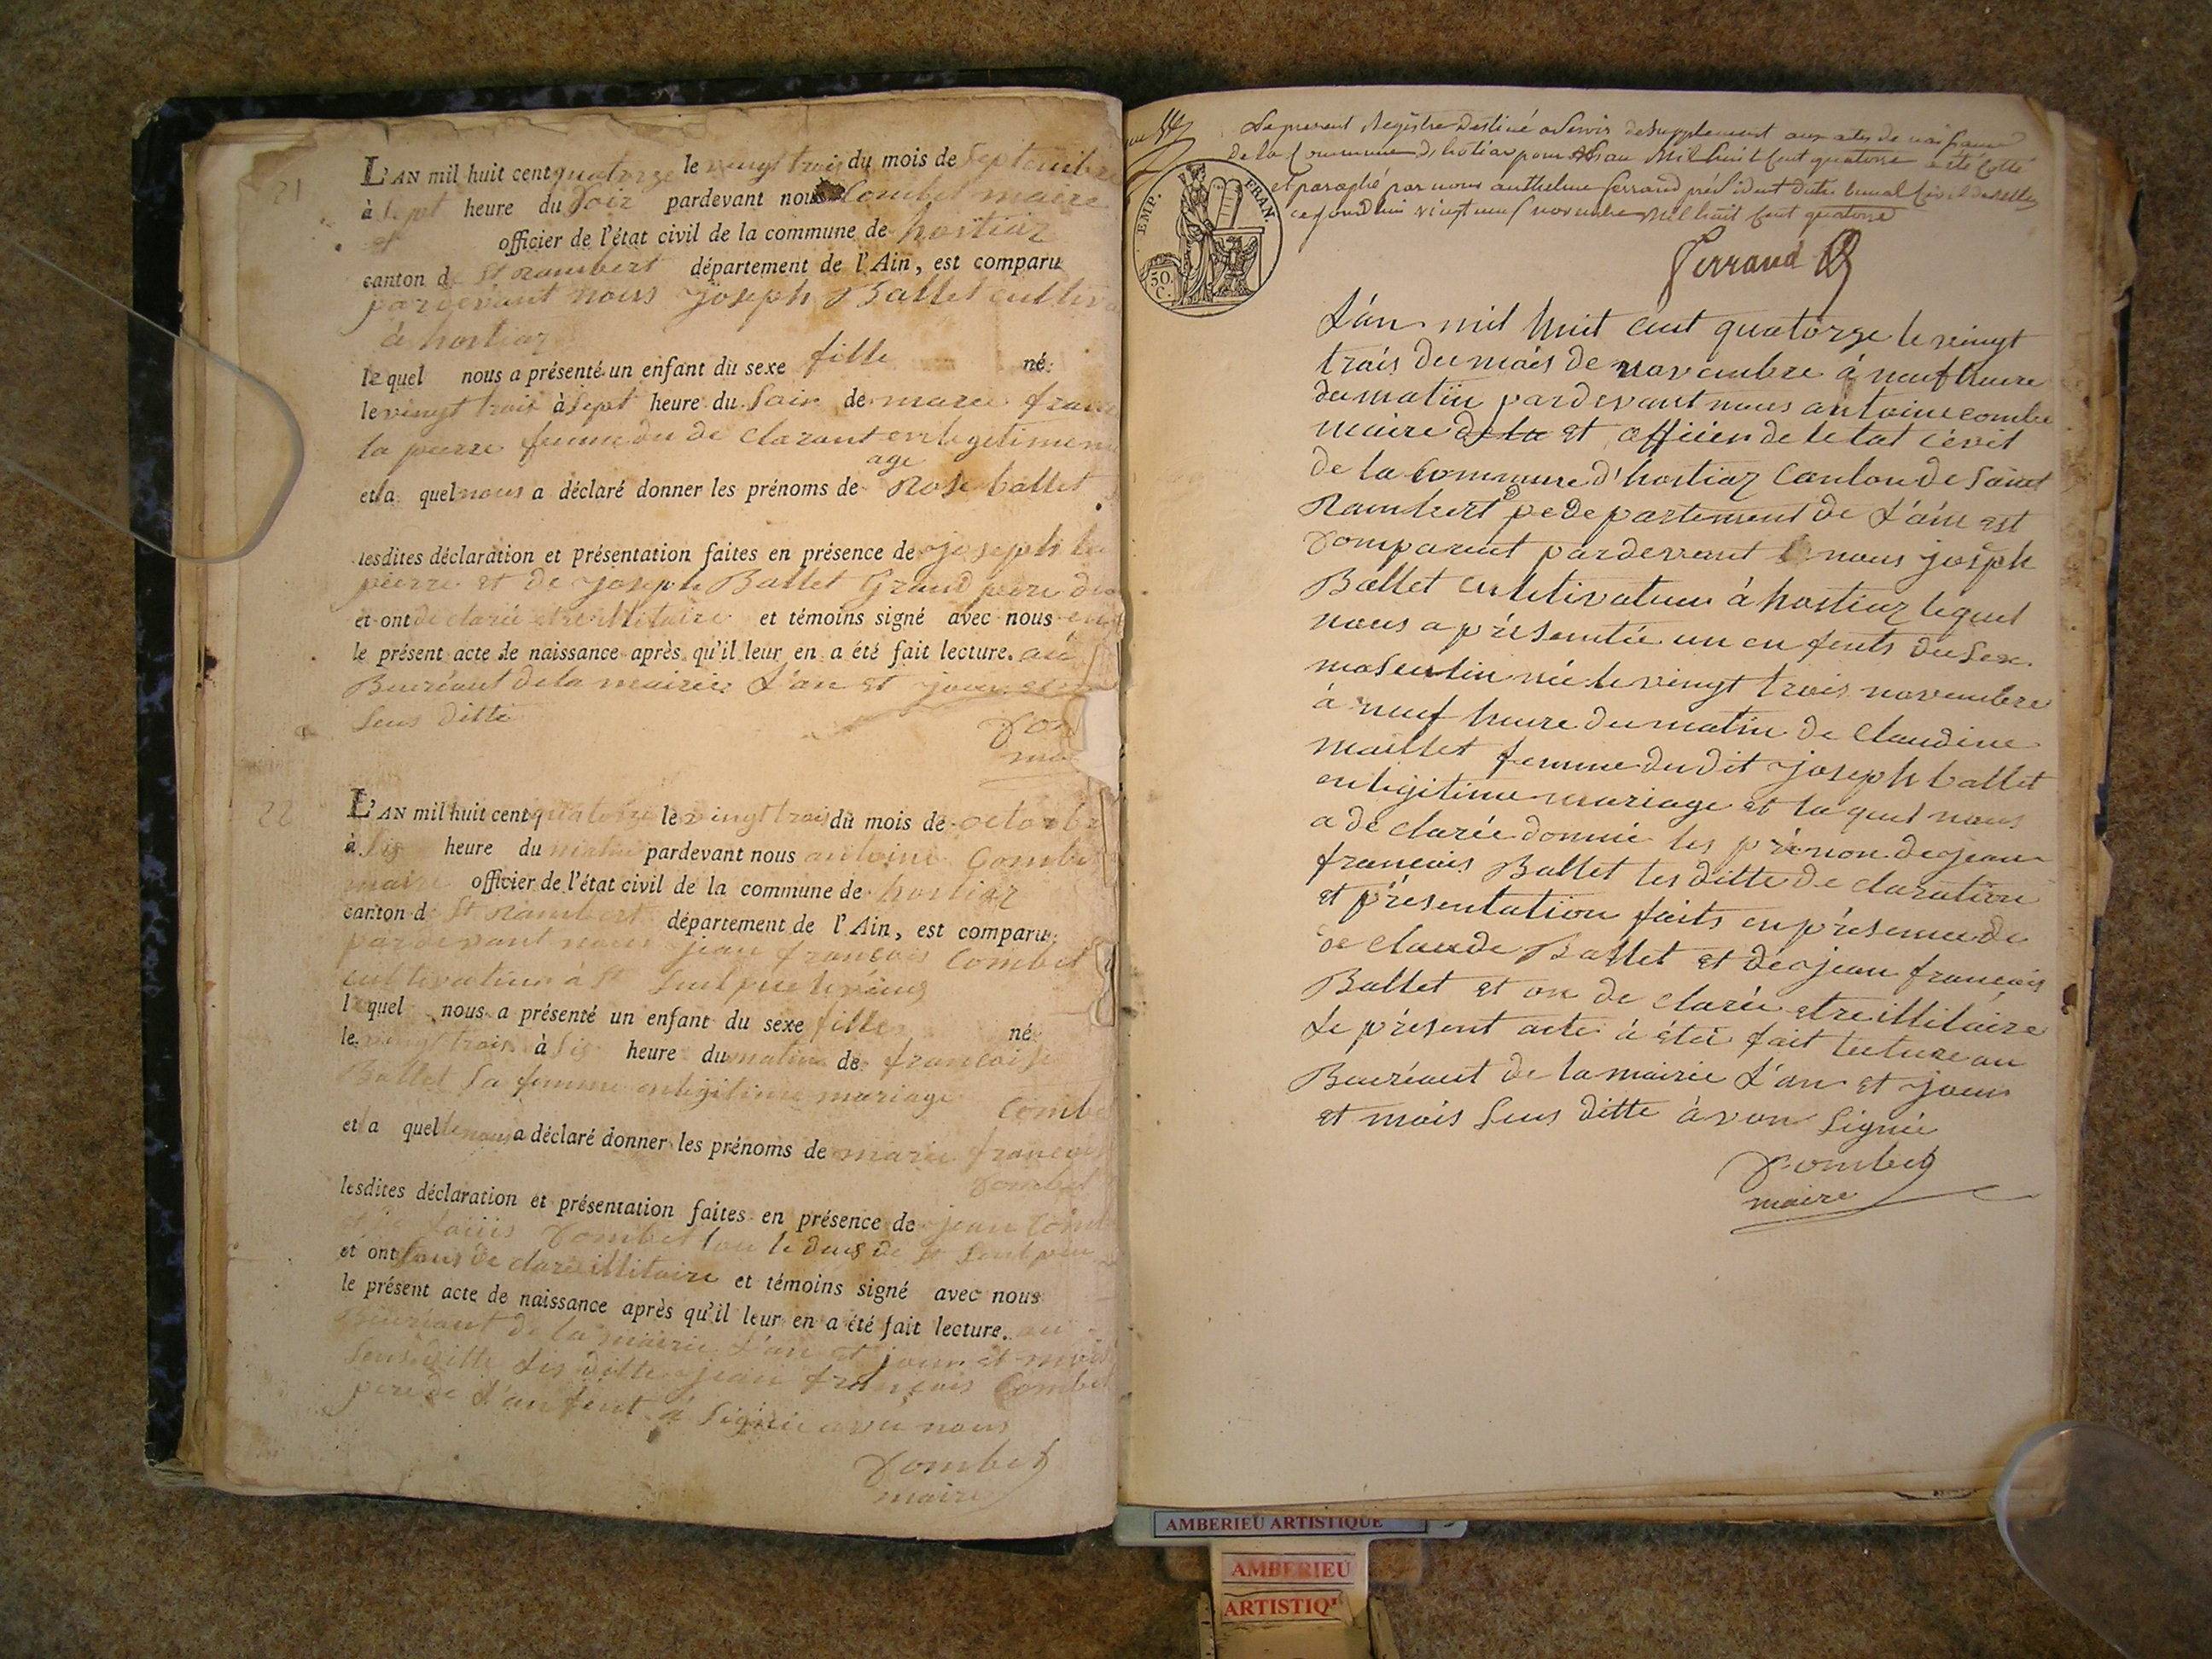 21
L'AN mil huit cent quatorze le vingt trois du mois de Septembre
à Sept heure du Soir pardevant nous Combet maire
et officier de l'état civil de la commune de hostiaz
canton de St rambert département de l'Ain, est comparu
pardevant nous Joseph Ballet cultiva
à hostiaz
le quel nous a présenté un enfant du sexe fille né
le vingt trois à Sept heure du Soir de marie franc
la pierre femme du de clarant en legitime m
age
et la quel nous a déclaré donner les prénoms de Rose ballet
lesdites déclaration et présentation faites en présence de joseph la
pierre et de joseph Ballet Grand pere du
et ont de clarié etre illitaire et témoins signé avec nous
le présent acte de naissance après qu'il leur en a été fait lecture. au
Bureaut de la mairie L'an et jour et
Sus ditte
Com
ma
22
L'AN mil huit cent quatorze le vingt trois du mois de octobre
à Sis heure du matin pardevant nous antoine Combet
maire officier de l'état civil de la commune de hostiaz
canton d St Rambert département de l'Ain, est comparu
pardevant nous jean francois Combet
cultivateur à St Sulpice le vieux
l quel nous a présenté un enfant du sexe fille né
le vingt trois à Sis heure du matin de francoise
Ballet Sa femme en legitime mariage
Combe
et la quelle nous a déclaré donner les prénoms de marie francoise
Combet
lesdites déclaration et présentation faites en présence de jean Comb
et de louis Combet tou le deus de St Sulpice
et ont Sous de clarée illitaire et témoins signé avec nous
le présent acte de naissance après qu'il leur en a été fait lecture. au
Bureaut de la mairie L'an et jour et mois
Sus ditte Les ditte jean françois Combet
pere de L'anfent a Signée avec nous
Combet
maire
Le present Registre destiné a Servir de Supplement aux actes de naissance
de la Commune d'hostiaz pour L'an Mil huit Cent quatorze a été Cotté
et paraphé par nous anthelme ferrand président du tribunal Civil de Belley
ce jourd'hui vingt neuf novembre Mil huit Cent quatorze
Ferrand
EMP. FRAN.
50. C.
L'an mil huit cent quatorze le vingt
trois du mois de novembre à neuf heure
du matin pardevant nous antoine combe
maire de la et officier de letat cévil
de la Commune d'hostiaz Canton de Saint
Rambert pe departement de L'ain est
Comparent pardevent nous joseph
Ballet cultivateur à hostiaz lequel
nous a présentée un enfents du Sex
masculin née le vingt trois novembre
à neuf heure du matin de Claudine
maillet femme du dit joseph ballet
en legitime mariage et la quel nous
a de clarée donnée les prénon de jean
francois Ballet les ditte de claration
et présentation faits en présence de
de claude Ballet et de jean francois
Ballet et on de clarée etre illitaire
Le présent acte à été fait lecture au
Bureaut de la mairie L'an et jour
et mois Sus ditte avon Signée
Combet
maire
AMBERIEU ARTISTIQUE
AMBERIEU
ARTISTIQ